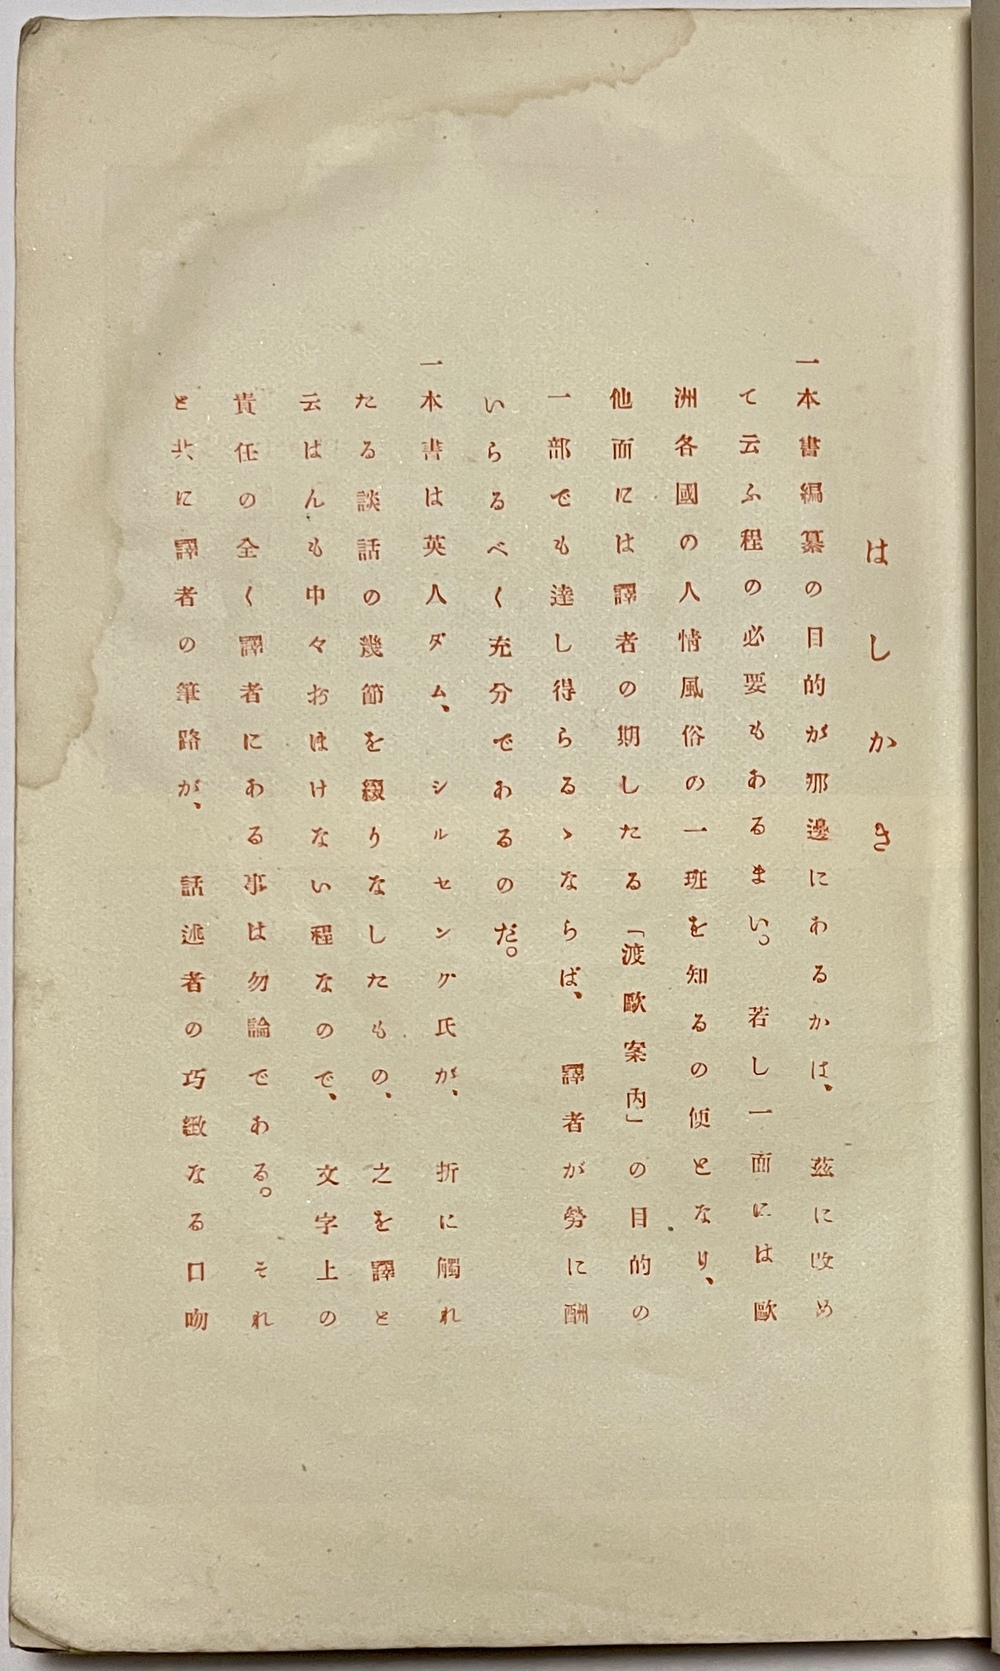 はしかき
一本書編纂の目的が那邊にあるかは、茲に改め
て云ふ程の必要もあるまい。若し一面には歐
洲各國の人情風俗の一班を知るの便となり、
他面には譯者の期したる「渡歐案內」の目的の
一部でも達し得らるゝならば、譯者が勞に酬
いらるべく充分であるのだ。
一本書は英人ダム、シルセング氏が、折に觸れ
たる談話の幾節を綴りなしたもの、之を譯と
云はんも中々おほけない程なので、文字上の
責任の全く譯者にある事は勿論である。それ
と共に譯者の筆路が、話述者の巧緻なる口吻